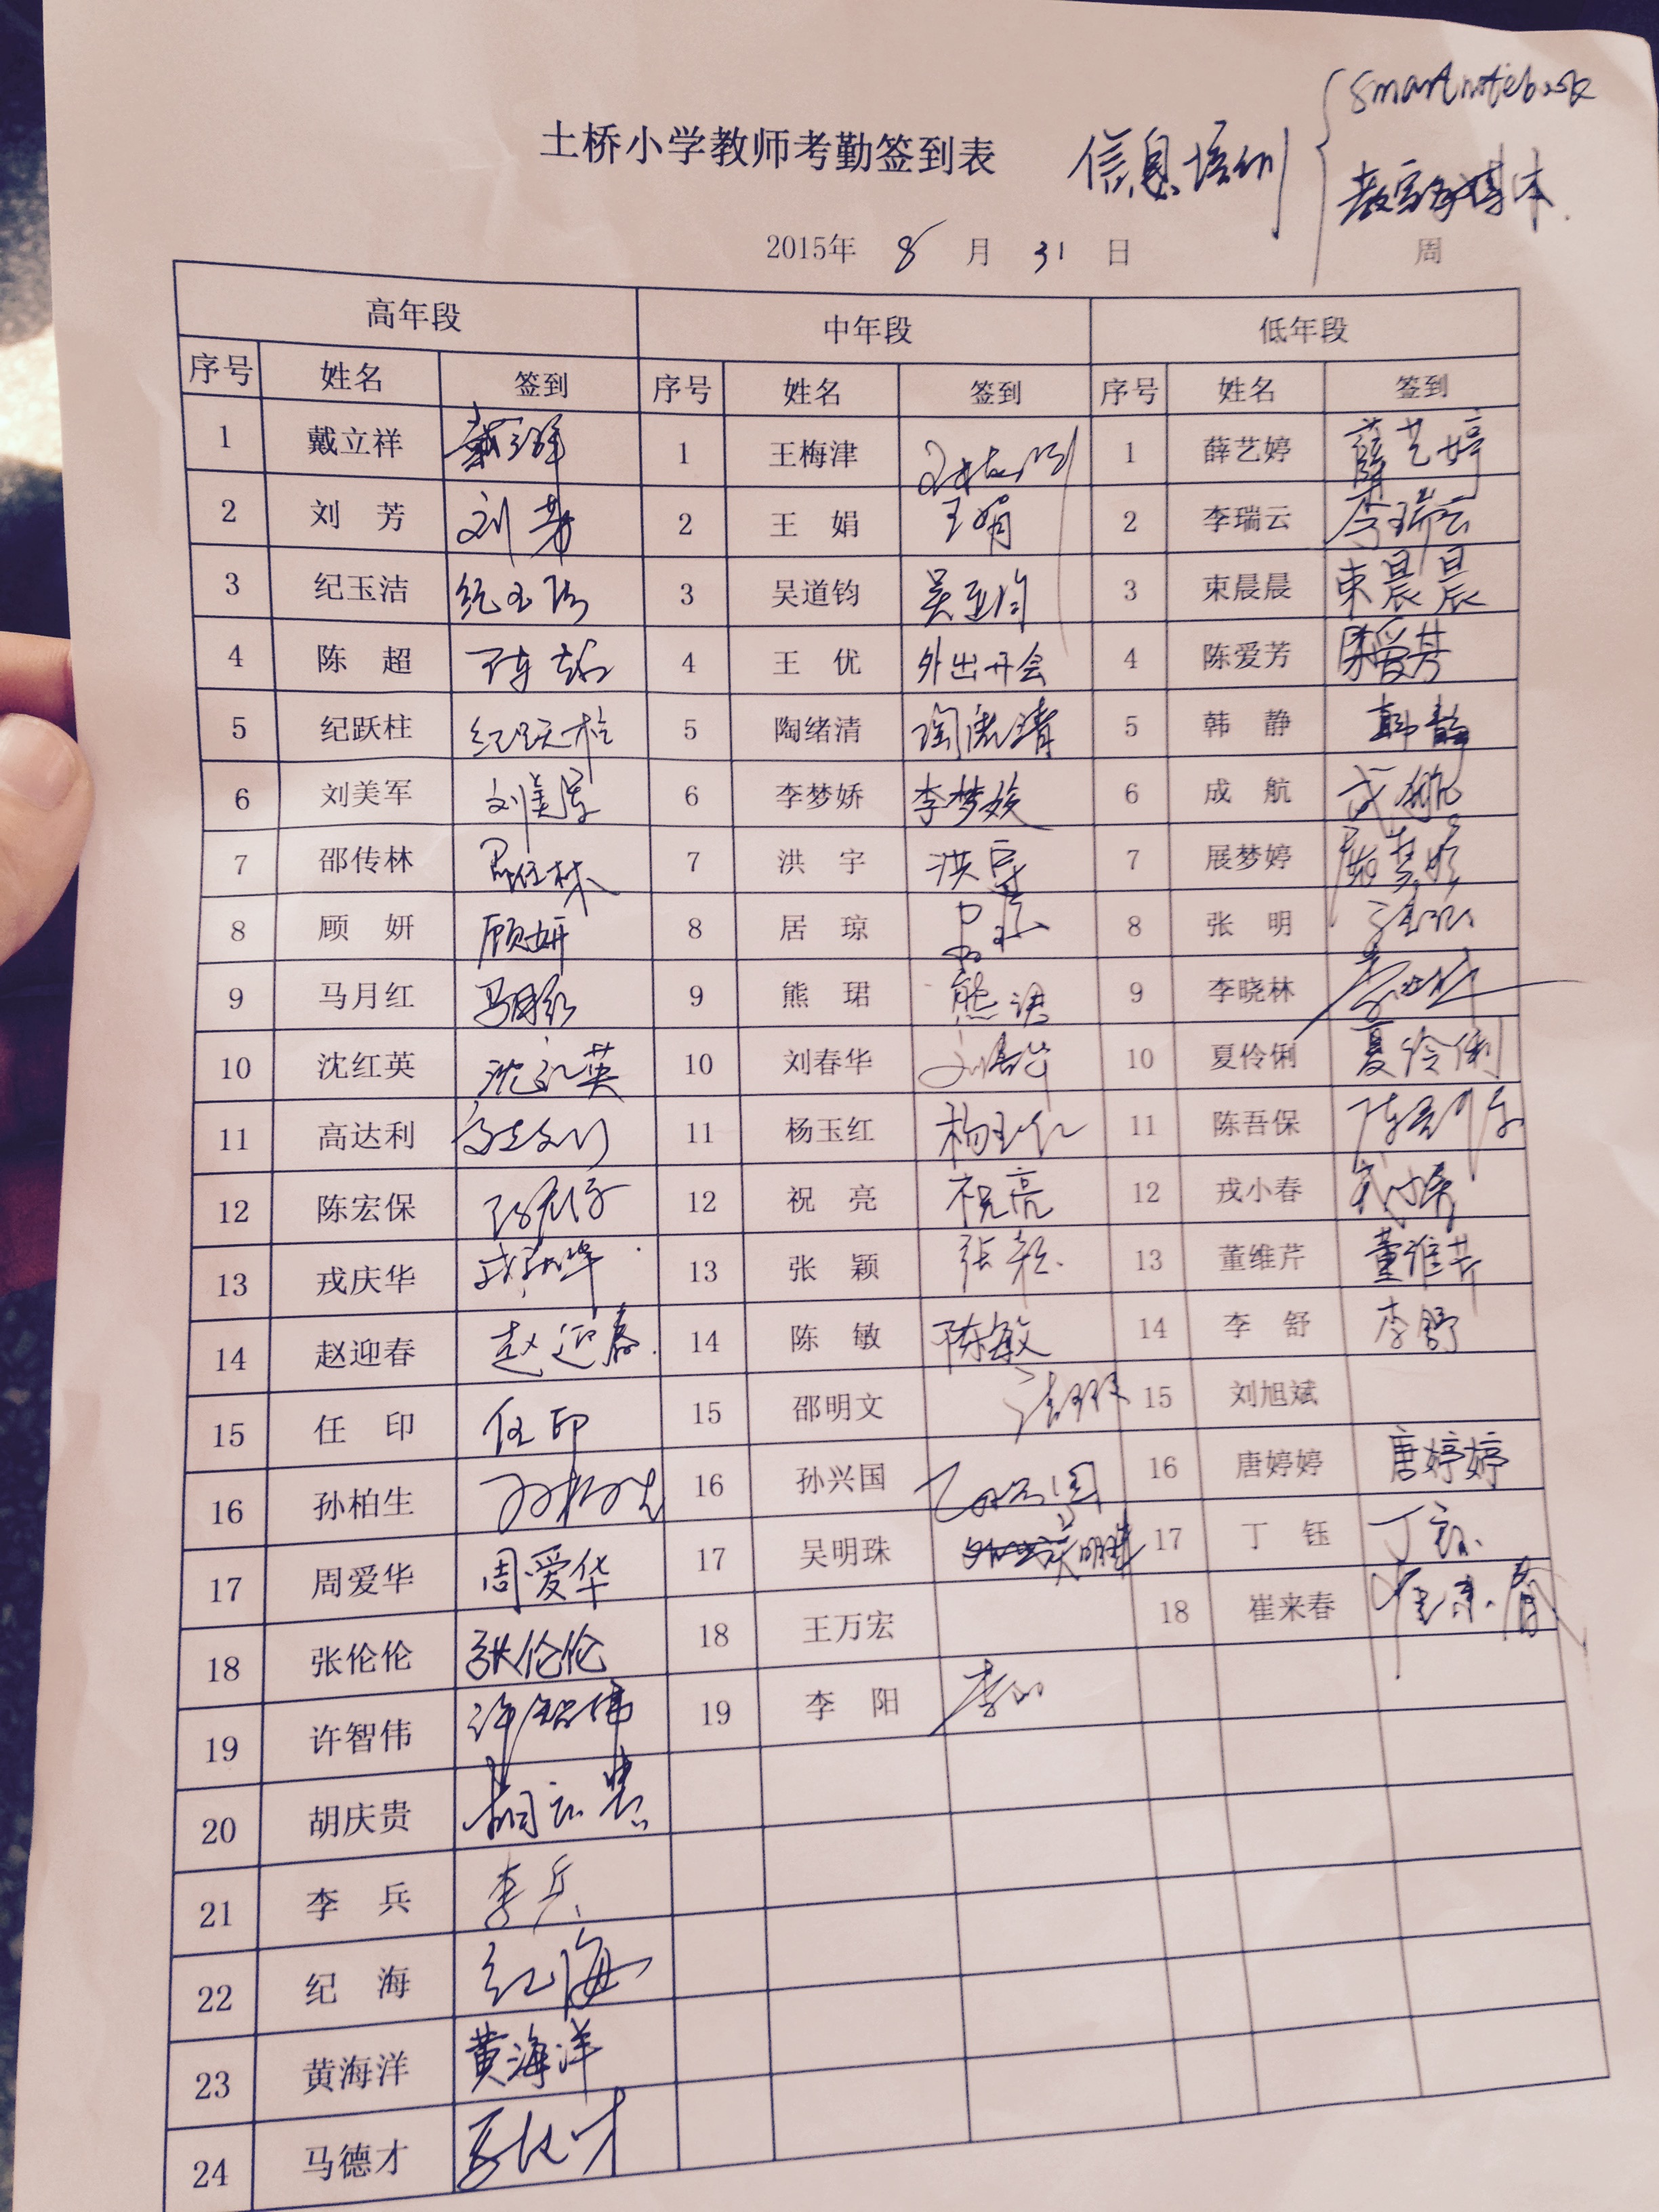 smart notebook
土桥小学教师考勤签到表 信息培训
2015年 8 月 31 日 周
高年段 中年段 低年段
序号 姓名 签到 序号 姓名 签到 序号 姓名 签到
1 戴立祥 1 王梅津 1 薛艺婷 薛艺婷
2 刘 芳 刘芳 2 王 娟 王娟 2 李瑞云 李瑞云
3 纪玉洁 纪玉洁 3 吴道钧 3 束晨晨 束晨晨
4 陈 超 陈超 4 王 优 外出开会 4 陈爱芳 陈爱芳
5 纪跃柱 纪跃柱 5 陶绪清 陶绪清 5 韩 静 韩静
6 刘美军 刘美军 6 李梦娇 李梦娇 6 成 航 成航
7 邵传林 7 洪 宇 洪宇 7 展梦婷 展梦婷
8 顾 妍 顾妍 8 居 琼 8 张 明
9 马月红 马月红 9 熊 珺 熊珺 9 李晓林
10 沈红英 沈红英 10 刘春华 刘春华 10 夏伶俐 夏伶俐
11 高达利 11 杨玉红 杨玉红 11 陈吾保
12 陈宏保 12 祝 亮 祝亮 12 戎小春 戎小春
13 戎庆华 13 张 颖 张颖 13 董维芹 董维芹
14 赵迎春 赵迎春 14 陈 敏 陈敏 14 李 舒 李舒
15 任 印 任印 15 邵明文 15 刘旭斌
16 孙柏生 孙柏生 16 孙兴国 16 唐婷婷 唐婷婷
17 周爱华 周爱华 17 吴明珠 吴明珠 17 丁 钰 丁钰
18 张伦伦 张伦伦 18 王万宏 18 崔来春 崔来春
19 许智伟 许智伟 19 李 阳
20 胡庆贵 胡庆贵
21 李 兵 李兵
22 纪 海 纪海
23 黄海洋 黄海洋
24 马德才